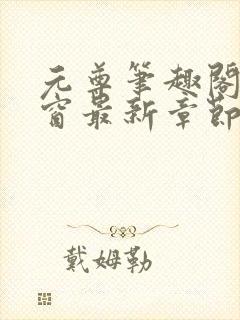 元尊筆趣閣
窗最新章節
戴姆勒